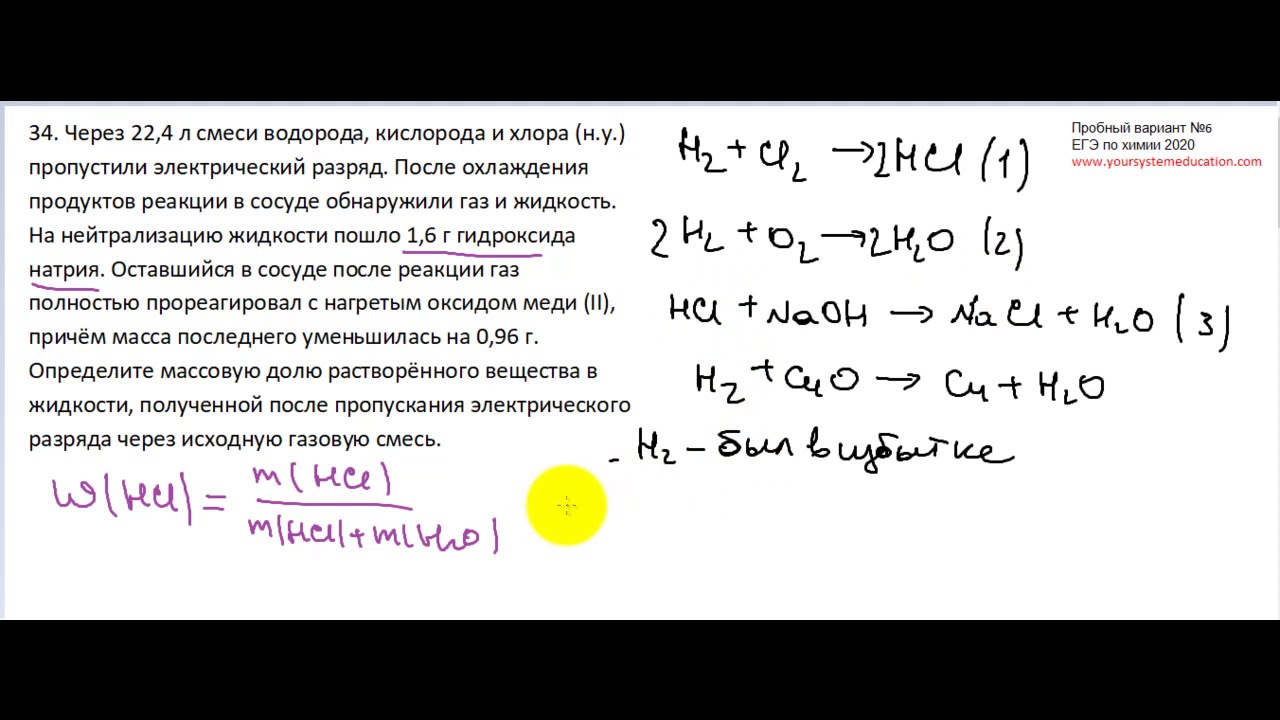 34. Через 22,4 л смеси водорода, кислорода и хлора (н.у.)
пропустили электрический разряд. После охлаждения
продуктов реакции в сосуде обнаружили газ и жидкость.
На нейтрализацию жидкости пошло 1,6 г гидроксида
натрия. Оставшийся в сосуде после реакции газ
полностью прореагировал с нагретым оксидом меди (II),
причём масса последнего уменьшилась на 0,96 г.
Определите массовую долю растворённого вещества в
жидкости, полученной после пропускания электрического
разряда через исходную газовую смесь.
W(HCl) = m(HCl) / m(HCl)+m(H2O)
H2 + Cl2 → 2HCl (1)
2H2 + O2 → 2H2O (2)
HCl + NaOH → NaCl + H2O (3)
H2 + CuO → Cu + H2O
- H2 – был в избытке
Пробный вариант №6
ЕГЭ по химии 2020
www.yoursystemeducation.com